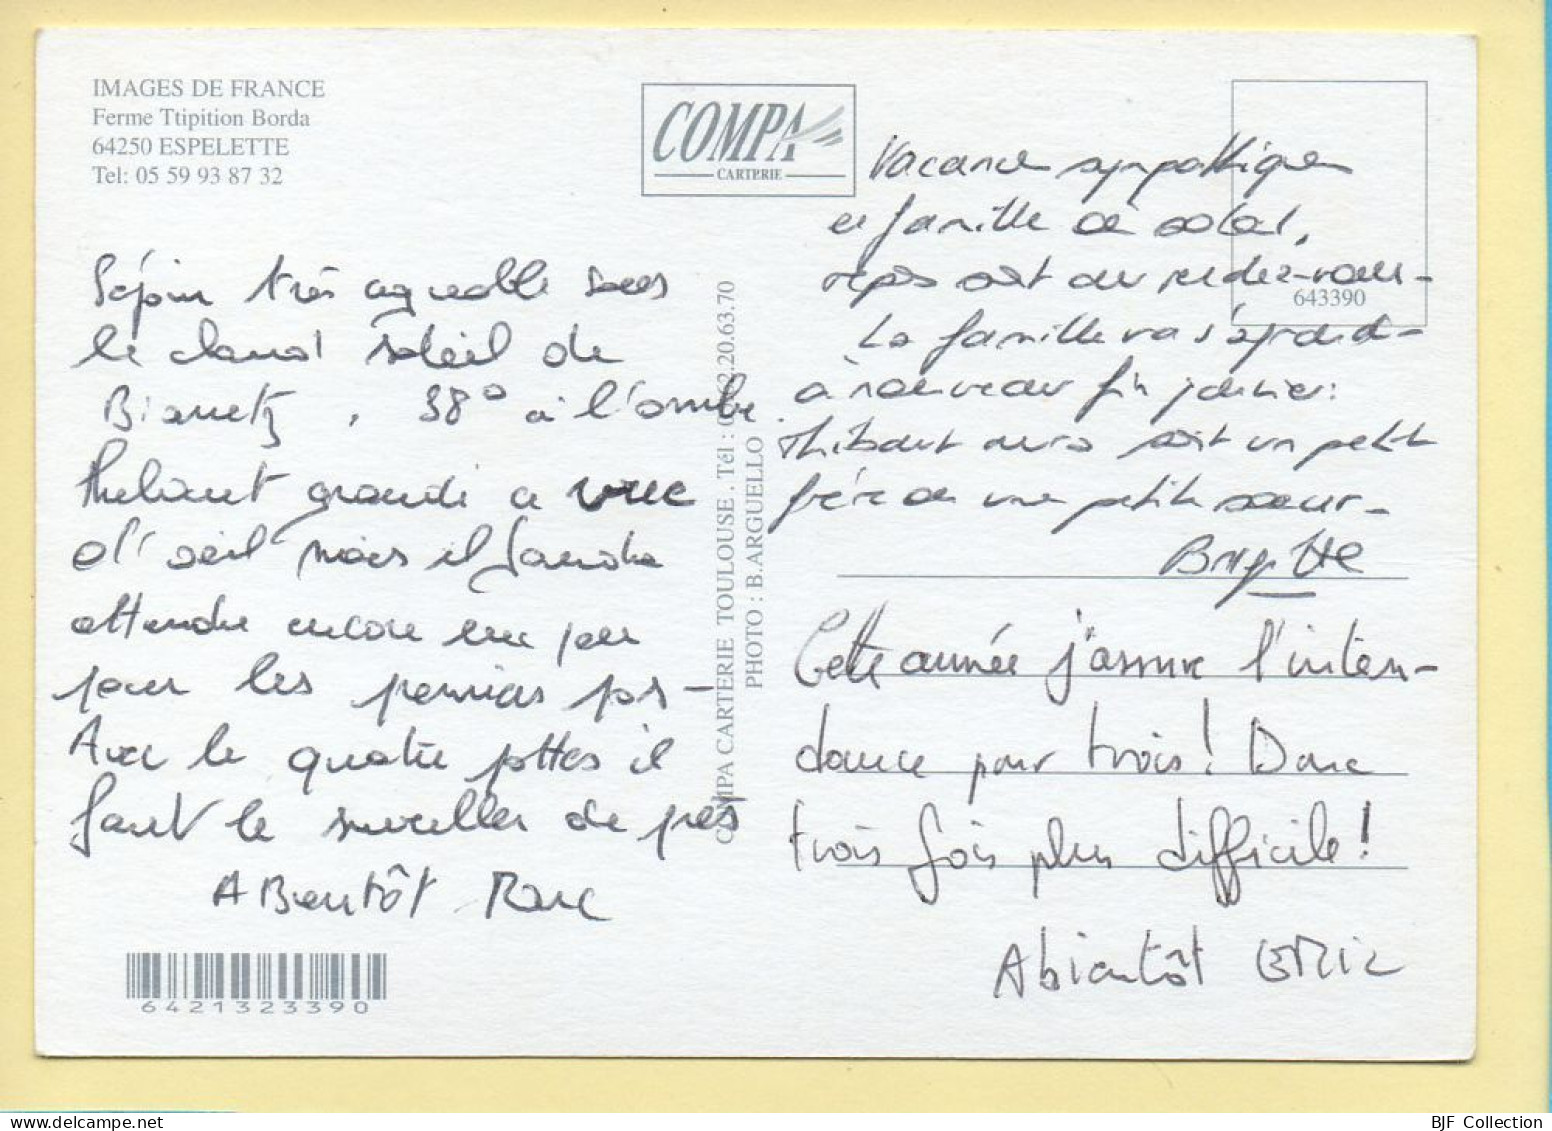 IMAGES DE FRANCE
Ferme Ttipition Borda
64250 ESPELETTE
Tel: 05 59 93 87 32
COMPA
CARTERIE
643390
Séjour très agreable sous
le chaud soleil de
Biarritz, 38° à l'ombre
Thibaut grandi a vue
d'oeil mais il faudra
attendre encore un peu
pour les premiers pas-
Avec le quatre pattes il
faut le surveiller de près
A Bientôt Marc
6421323390
COMPA CARTERIE TOULOUSE . Tél : 62.20.63.70
PHOTO : B.ARGUELLO
Vacances sympathiques
en famille où soleil,
repos sont au rendez-vous-
La famille va s'agrandir
à nouveau fin janvier:
Thibaut aura soit un petit
frère ou une petite soeur-
Brigitte
Cette année j'assure l'inten-
dance pour trois! Donc
trois fois plus difficile!
A bientôt